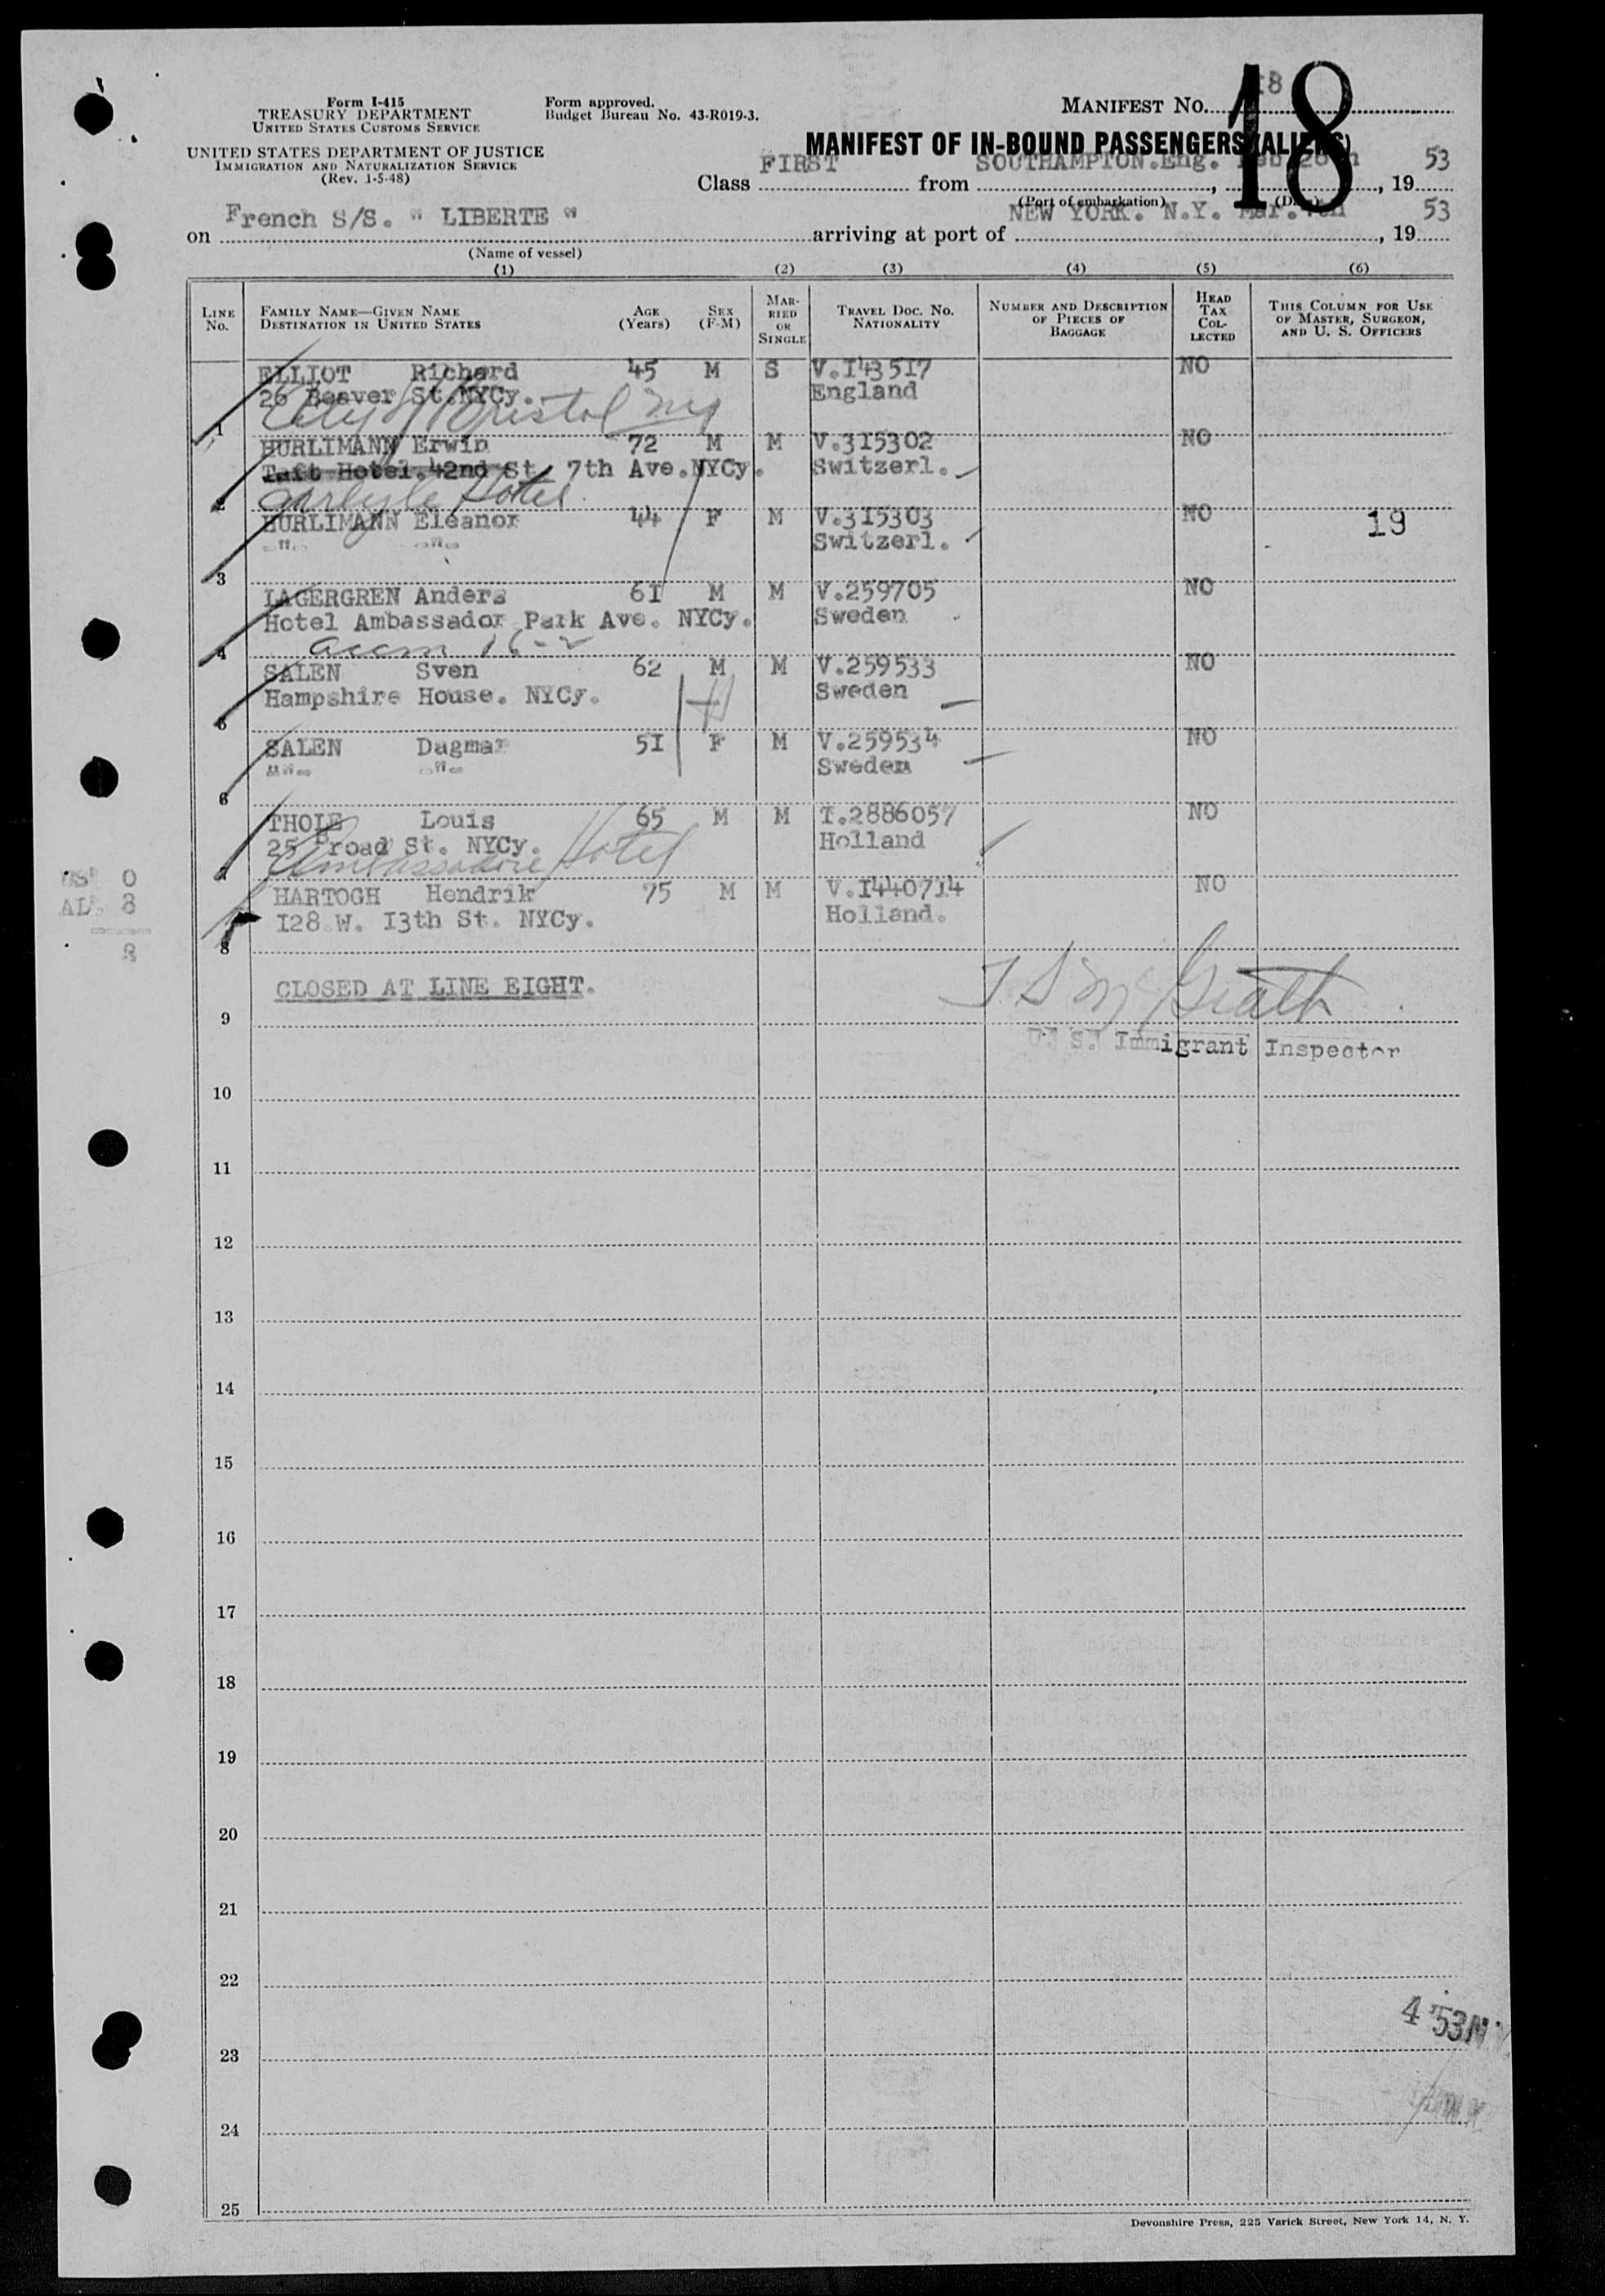 18
Form I-415
TREASURY DEPARTMENT
UNITED STATES CUSTOMS SERVICE
UNITED STATES DEPARTMENT OF JUSTICE
IMMIGRATION AND NATURALIZATION SERVICE
(Rev. 1-5-48)
Form approved.
Budget Bureau No. 43-R019-3.
MANIFEST No. 18
MANIFEST OF IN-BOUND PASSENGERS (ALIENS)
Class FIRST from SOUTHAMPTON.Eng. , 19 53
(Port of embarkation) (Date)
on French S/S. " LIBERTE " arriving at port of NEW YORK. N.Y. Mar. , 19 53
(Name of vessel)
(1) (2) (3) (4) (5) (6)
LINE No. FAMILY NAME—GIVEN NAME DESTINATION IN UNITED STATES AGE (Years) SEX (F-M) MARRIED OR SINGLE TRAVEL DOC. NO. NATIONALITY NUMBER AND DESCRIPTION OF PIECES OF BAGGAGE HEAD TAX COLLECTED THIS COLUMN FOR USE OF MASTER, SURGEON, AND U. S. OFFICERS
ELLIOT Richard 45 M S V.I43517 NO
26 Beaver St.NYCy. England
1 City of Bristol
HURLIMANN Erwin 72 M M V.315302 NO
Taft Hotel.42nd St. 7th Ave.NYCy. Switzerl.
2 Carlyle Hotel
HURLIMANN Eleanor 44 F M V.315303 NO 19
-"- -"- Switzerl.
3
LAGERGREN Anders 6I M M V.259705 NO
Hotel Ambassador Park Ave. NYCy. Sweden
4 16-2
SALEN Sven 62 M M V.259533 NO
Hampshire House. NYCy. Sweden
5
SALEN Dagmar 5I F M V.259534 NO
-"- -"- Sweden
6
THOLE Louis 65 M M I.2886057 NO
25 Broad St. NYCy. Holland
7 Ambassadore Hotel
HARTOGH Hendrik 75 M M V.I4407I4 NO
I28 W. I3th St. NYCy. Holland.
8
US 0
AL 8
8
CLOSED AT LINE EIGHT.
T S McGrath
9
U. S. Immigrant Inspector
10
11
12
13
14
15
16
17
18
19
20
21
22
4 '53
23
24
25
Devonshire Press, 225 Varick Street, New York 14, N. Y.